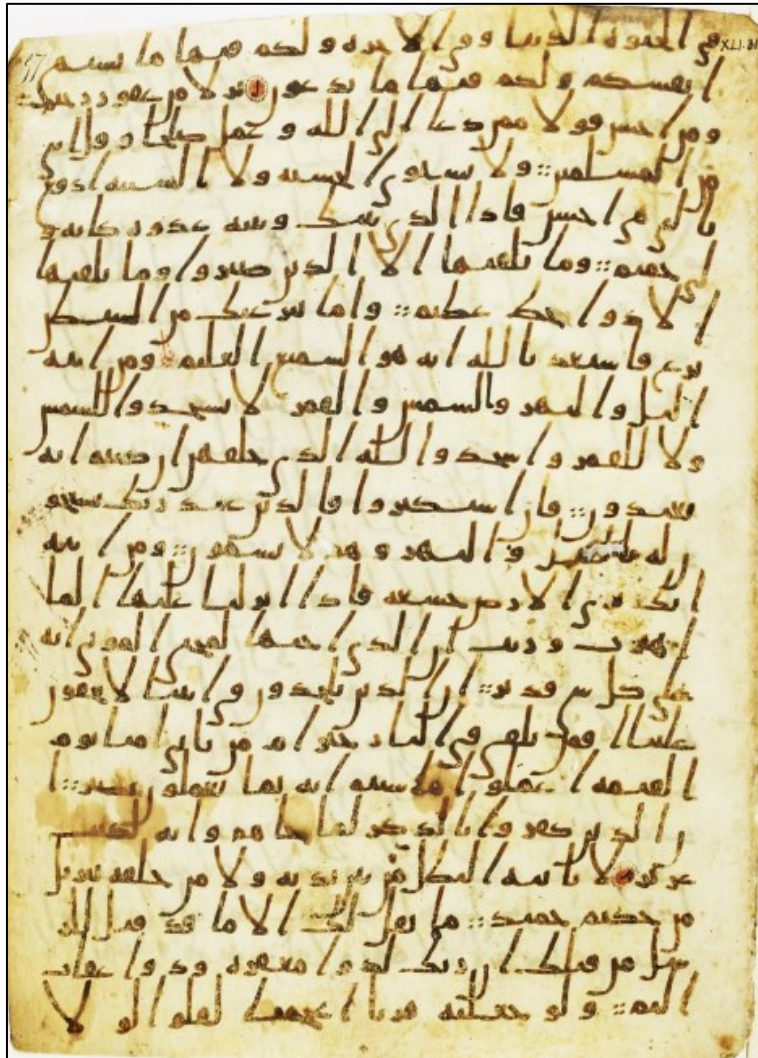 XLI.31
في الحيوه الدنيا وفي الاخره ولكم فيها ما تشتهي
انفسكم ولكم فيها ما تدعون نزلا من غفور رحيم
ومن احسن قولا ممن دعا الى الله وعمل صلحا وقال انني
من المسلمين ولا تستوي الحسنه ولا السيئه ادفع
بالتي هي احسن فاذا الذي بينك وبينه عدوه كانه و
لي حميم وما يلقيها الا الذين صبروا وما يلقيها
الا ذوا حظ عظيم واما ينزغنك من الشيطن
نزغ فاستعذ بالله انه هو السميع العليم ومن ايته
اليل والنهر والشمس والقمر لا تسجدوا للشمس
ولا للقمر واسجدوا لله الذي خلقهن ان كنتم ايه
تعبدون فان استكبروا فالذين عند ربك يسبحو
ن له باليل والنهر وهم لا يسمون ومن ايته
انك ترى الارض خشعه فاذا انزلنا عليها الما
اهتزت وربت ان الذي احيها لمحي الموتى انه
على كل شي قدير ان الذين يلحدون في ايتنا لا يخفون
علينا افمن يلقى في النار خير ام من ياتي امنا يوم
القيمه اعملوا ما شيتم انه بما تعملون بصير ا
ن الذين كفروا بالذكر لما جاهم وانه لكتب
عزيز لا ياتيه البطل من بين يديه ولا من خلفه تنزيل
من حكيم حميد ما يقل لك الا ما قد قيل للر
سل من قبلك ان ربك لذوا مغفره وذوا عقاب
اليم ولو جعلنه قرنا اعجميا لقلوا لو لا